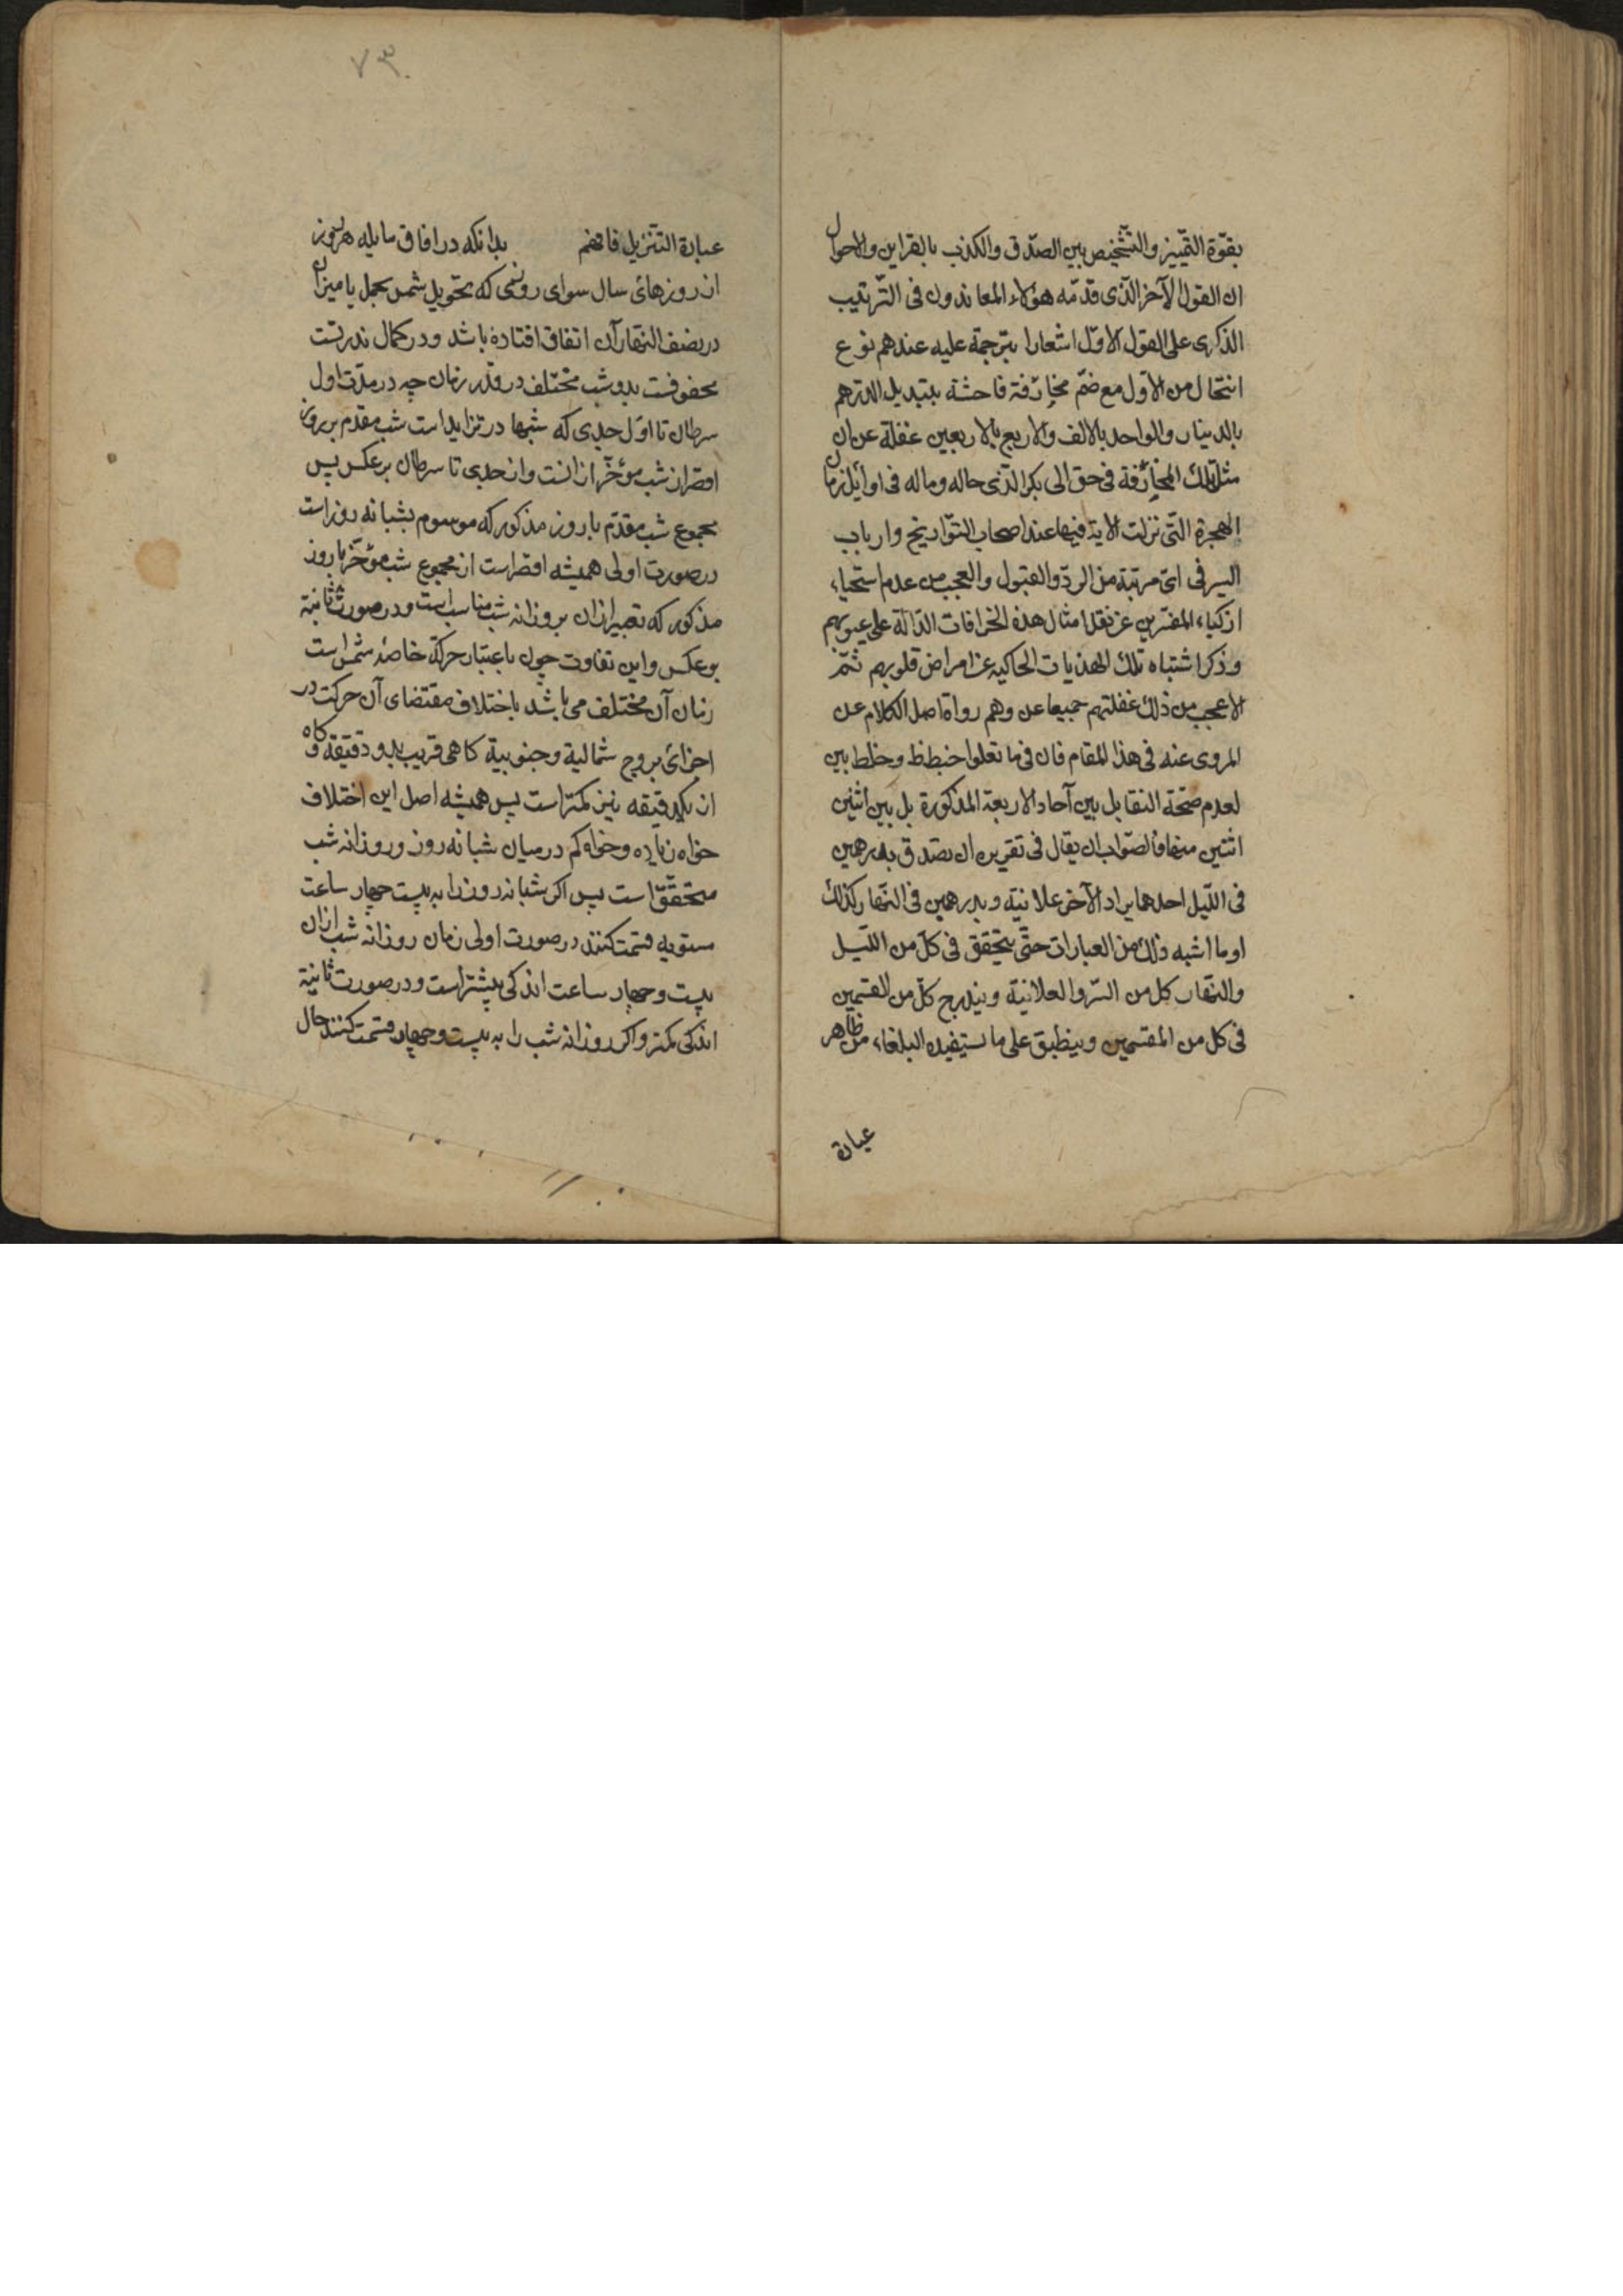 بقوّة التمییز والتشخیص بین الصدق والکذب بالقراین والاحوال
ان القول الآخر الذی قدّمه هؤلاء المعاندون فی الترتیب
الذکری علی القول الاوّل اشعارا بترجمة علیه عندهم نوع
انتحال من الاوّل مع ضمّ مجازفة فاحشة بتبدیل الدرهم
بالدینار والواحد بالالف والاربع بالاربعین غفلة عن ان
مثل تلک المجازفة فی حق ابی بکر الذی حاله وماله فی اوایل زمان
الهجرة التی نزلت الایة فیها عند اصحاب التواریخ وارباب
السیر فی ایّ مرتبة من الردّ والقبول والعجب من عدم استحیاء
ازکیاء المفسّرین عن نقل امثال هذه الخرافات الدالة علی عیوبهم
وذکر اشتباه تلک الهذیات الحاکیه عن امراض قلوبهم ثمّ
الاعجب من ذلک غفلتهم جمیعا عن وهم رواة اصل الکلام عن
المروی عنه فی هذا المقام فان فی ما نقلوا خبط وخلط بین
لعدم صحّة التقابل بین آحاد الاربعة المذکورة بل بین اثنین
اثنین منها فالصواب ان یقال فی تقریره ان تصدق بدرهمین
فی اللّیل احدهما سرا والآخر علانیة وبدرهمین فی النهار کذلک
او ما اشبه ذلک من العبارات حتّی یتحقق فی کلّ من اللّیل
والنهار کل من السّر والعلانیة ویندرج کلّ من القسمین
فی کل من المقسمین وینطبق علی ما یستفیده البلغاء من ظاهر
عبارة
٧٣
عبارة التنزیل فافهم بدانکه در افاق مایله هر روز
از روزهای سال سوای روزی که تحویل شمس بحمل یا میزان
در نصف النهار آن اتفاق افتاده باشد و در کمال ندرتست
محفوفست بدو شب مختلف در قدر زمان چه در مدّت اول
سرطان تا اوّل جدی که شبها در تزاید است شب مقدم بر روز
اقصر از شب مؤخّر از انست و از جدی تا سرطان برعکس پس
مجموع شب مقدّم با روز مذکور که موسوم بشبانه روز است
در صورت اولی همیشه اقصر است از مجموع شب مؤخّر با روز
مذکور که تعبیر از ان بروزانه شب مناسب است و در صورت ثانیة
بر عکس و این تفاوت چون باعتبار حرکة خاصهٔ شمس است
زمان آن مختلف می باشد باختلاف مقتضای آن حرکت در
اجزای بروج شمالیة و جنوبیة کاهی قریب بدو دقیقه و کاه
از یکدقیقه نیز کمتر است پس همیشه اصل این اختلاف
خواه زیاده و خواه کم در میان شبانه روز و روزانه شب
متحقّق است پس اکر شبانه روز را به بیست چهار ساعت
مستویه قسمت کنند در صورت اولی زمان روزانه شب از ان
بیست و چهار ساعت اندکی بیشتر است و در صورت ثانیة
اندکی کمتر و اکر روزانه شب را به بیست و چهار قسمت کنند حال